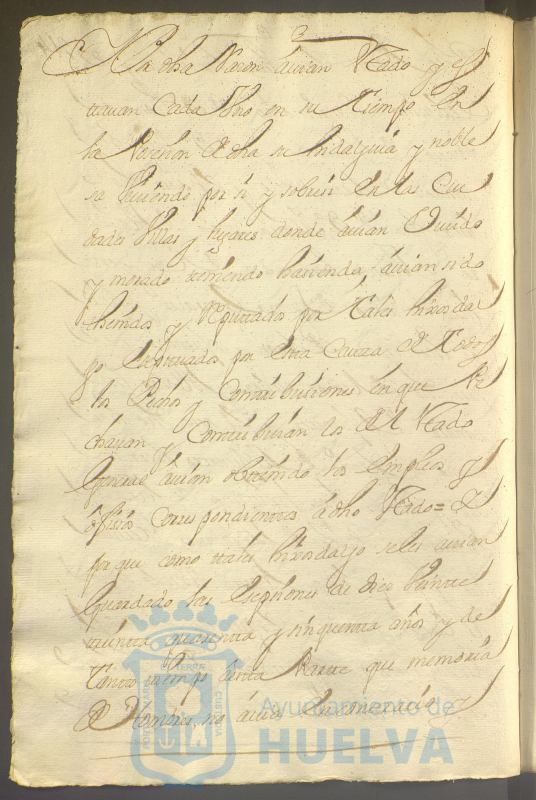 Por dha Razon avian Estado y es
tavan Cada Uno en su tiempo en
la Posesion de dha su hidalguia y noble
sa Viviendo por si y sobresi en las Ciu
dades Villas y lugares donde avian Vivido
y morado teniendo hasienda, avian sido
thenidos y Reputados por tales hixosdal
go esceptuados por esta Causa de todos
los Pechos y Contribusiones en que Pe
chavan y Contribuian los del Estado
General avian obtenido los empleos y
ofisios Correspondientes a dho Estado= Y
porque como tales hixosdalgo se les avian
Guardado las esepsiones de dies Veinte
treinta quarenta y sinquenta años y de
tanto tiempo a esta Parte que memoria
de Hombres no avia en contrario y
Ayuntamiento de
HUELVA